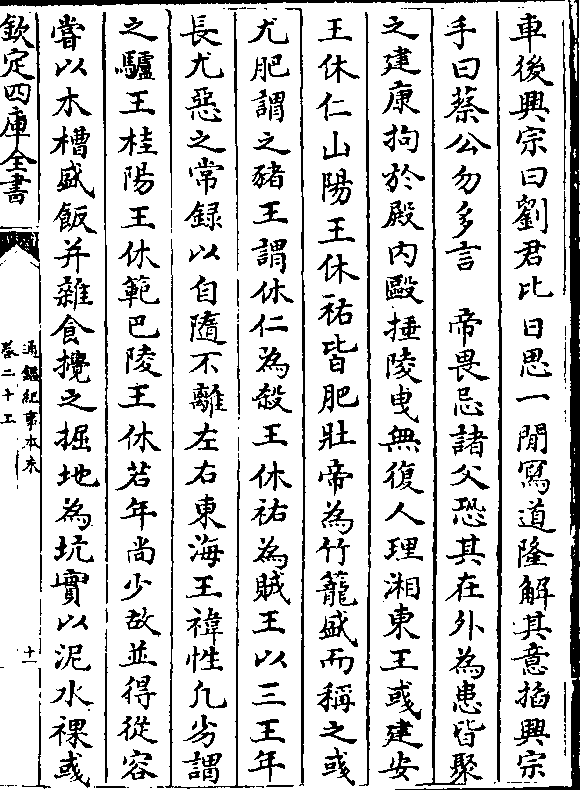 車後興宗曰劉君比日思一閒寫道隆解其意掐興宗
手曰蔡公勿多言　帝畏忌諸父恐其在外為患皆聚
之建康拘於殿內毆捶陵曳無復人理湘東王彧建安
王休仁山陽王休祐皆肥壯帝為竹籠盛而稱之彧
尤肥謂之豬王謂休仁為殺王休祐為賊王以三王年
長尤惡之常録以自隨不離左右東海王禕性凡劣謂
之驢王桂陽王休範巴陵王休若年尚少故並得從容
嘗以木槽盛飯并雜食攪之掘地為坑實以泥水裸彧
欽定四庫全書
通鑑紀事本末
卷二十上
十一